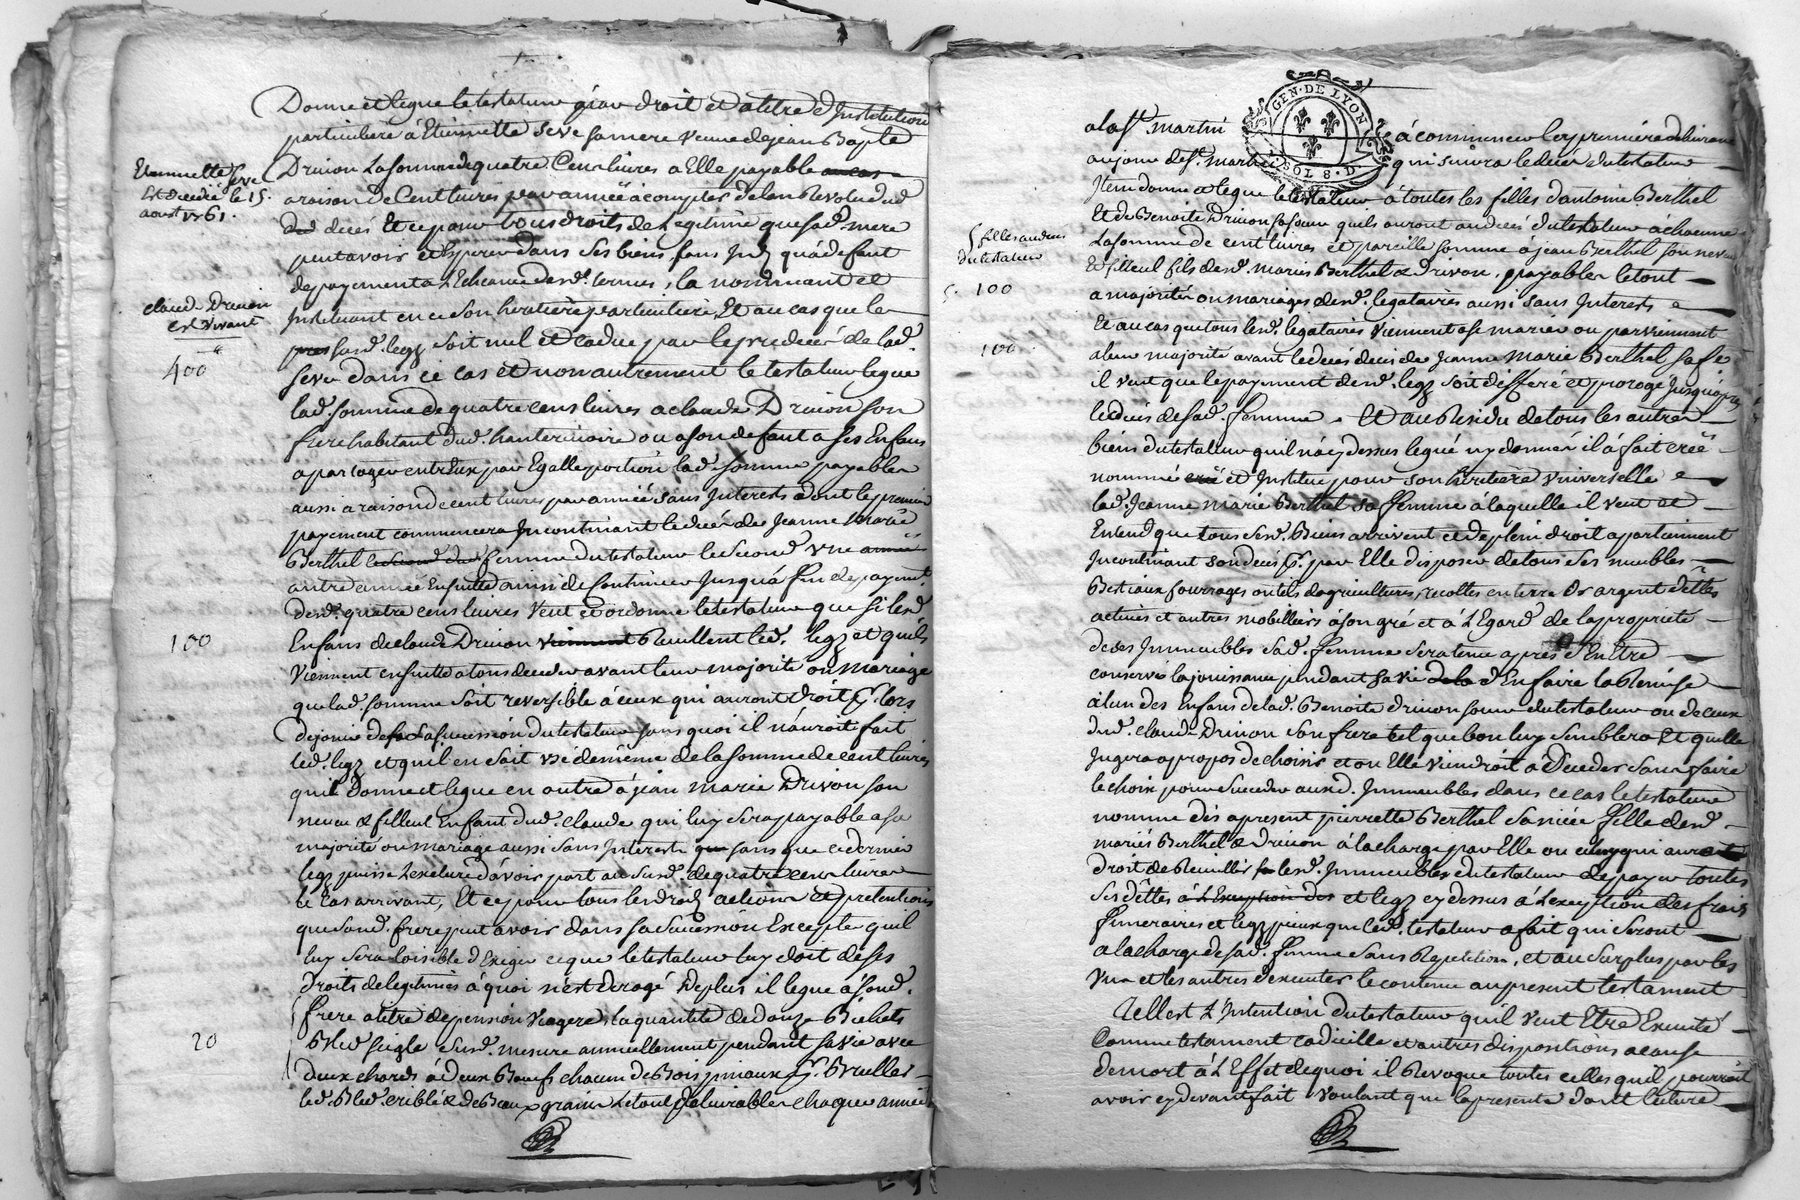 Donne et legue le testateur par droit et a titre d'Institution
particuliere à Etiennette Seve sa mere veuve de jean Bapte
Drivon la somme de quatre Cens livres a Elle payable au cas
a raison de Cent livres par année à compter de l'an Revolu dud
dud decés Et ce pour tous droits de Legitime que sad. mere
peut avoir et esperer dans ses biens sans qu'à defaut
de payement a L'Echeance desd. termes, la nommant et
Instituant en ce son heritiere particuliere, Et au cas que le
pres sand. legz soit nul et caduc par le predecés de lad.
Seve dans ce cas et non autrement le testateur legue
lad. somme de quatre cens livres a claude Drivon son
frere habitant dud. hauterivoire ou a son defaut a ses Enfans
a partager entr'eux par Egalle portion lad. somme payable
aussi a raison de cent livres par année sans Interests dont le premier
payement commencera Incontinant le decés de Jeanne Marie
Berthel femme du testateur le second une année
autre année Ensuitte ainsi de continuer Jusqu'à fin de payemt
desd. quatre cens livres Veut et ordonne le testateur que si lesd
Enfans de claude Drivon viennent Recuillent led. legz et quils
Viennent ensuitte a tous deceder avant leur majorité ou mariage
que lad. somme soit reversible à ceux qui auront droit lors
de jouir de la succession du testateur sans quoi il n'auroit fait
led. legz et quil en soit usé de mème de la somme de cent livres
quil donne et legue en outre à jean marie Drivon son
neveu & filleul Enfant dud. claude qui luy sera payable a sa
majorité ou mariage aussi sans Interests que sans que ce dernier
legz puisse L'exclure d'avoir part au susd. de quatre cens livres
le cas arrivant, Et ce pour tous les droits actions et pretentions
que sond. frere peut avoir dans sa succession Excepté quil
luy sera loisible d'Exiger ce que le testateur luy doit de ses
droits de legitimes à quoi n'est derogé De plus il legue à sond.
frere a titre de pension viagere, la quantité de douze Bichets
Bled seigle susd. mesure annuellement pendant sa vie avec
deux chards à deux Boeufs chacun de Bois pinaux Bruller
led. Bled criblé & de Beau grain Le tout delivrable chaque année
Etiennette Seve
Est decedée le 15.
aoust 1761.
claude Drivon
est vivant
400
100
20
a la st. martin à commencer la premiere delivrance
au jour de st. martin qui suivra le decés du testateur
GEN. DE LYON
SOL 8. D.
Item donne et legue le testateur à toutes les filles d'antoine Berthel
Et de Benoite Drivon sa soeur quels auront au decés du testateur à chacune
La somme de cent livres et pareille somme à jean Berthel son neveu
Et filleul fils desd. mariés Berthel & Drivon, payable le tout
a majorités ou mariages desd. legataires aussi sans Interests
Et au cas que tous lesd. legataires viennent a se marier ou parviennent
a leur majorité avant le decés de Jeanne Marie Berthel sa fe
il veut que le payement desd. legz soit differé et prorogé Jusqu'apres
le decés de sad. femme. Et au Residu de tous les autres
biens du testateur quil n'a cy dessus legué ny donner il à fait creé
nommé et Institué pour son heritiere universelle
lad. Jeanne Marie Berthel sa femme à laquelle il veut et
Entend que tous sesd. Biens arrivent et de plein droit apartiennent
Incontinant son decés par Elle disposer de tous ses meubles
Bestiaux fourrages outils d'agricultures, recoltes en terre or argent dettes
actives et autres mobilliers à son gré et à L'Egard de la proprieté
de ses Immeubles sad. femme sera tenue après s'en être
conservé la jouissance pendant sa vie d'En faire la Remise
à l'un des Enfans de lad. Benoite Drivon soeur du testateur ou de ceux
dud. claude Drivon son frere tel que bon luy semblera Et quelle
Jugera apropos de choisir et ou Elle viendroit a Deceder sans faire
le choix pour succeder auxd. Immeubles dans ce cas le testateur
nomme dès apresent pierrette Berthel sa niece fille desd
mariés Berthel & Drivon à la charge par Elle ou celuy qui aura
droit de Recuillir lesd. Immeubles du testateur de payer toutes
ses dettes à L'Exception des et legz cy dessus à L'exeption des frais
funeraires et legz pieux que led. testateur a fait qui seront
a la charge de sad. femme sans Repetition, et au surplus par les
uns et les autres d'executer le contenu au present testament
Tell est L'Intention du testateur quil veut Etre Executé
Comme testament codicille et autres dispositions a cause
de mort à L'Effet de quoi il Revoque toutes celles quil pourroit
avoir cy devant fait voulant que la presente dont lecture
5 filles au decés
du testateur
5. 100
100